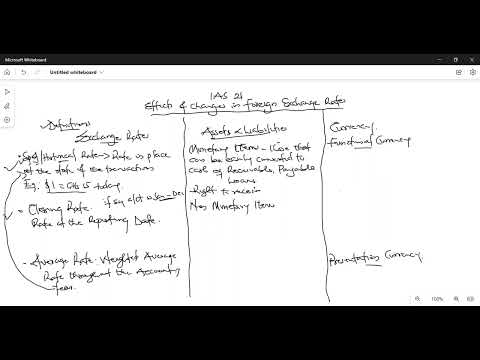 Microsoft Whiteboard
Untitled whiteboard
IAS 21
Effects of Changes in Foreign Exchange Rates
Definitions
Exchange Rates
Spot/Historical Rate → Rate in place
at the date of the transaction
Eg. $1 = GHS 15 today.
Closing Rate. if say a/c
Rate at the Reporting Date.
Average Rate. Weighted Average
Rate throughout the Accounting
Year.
Assets & Liabilities
Monetary Item - that
can be easily converted to
cash eg Receivables, Payables
Loans.
Right to receive
Non Monetary Item
Currency.
Functional Currency
Presentation Currency
100%